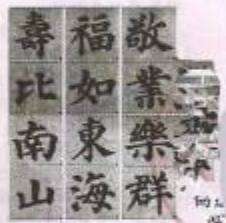 敬業樂群
福如東海
壽比南山